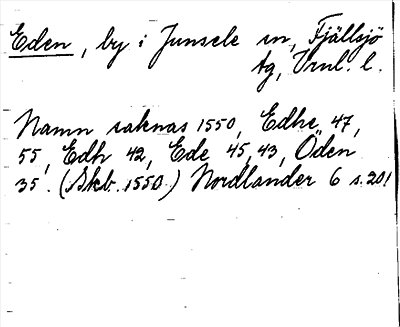 Eden, by i Junsele sn, Fjällsjö
tg, Vnl. l.
Namn saknas 1550, Edhe 47,
55, Edh 42, Ede 45, 43, Öden
35. (Skb. 1550.) Nordlander 6 s. 201